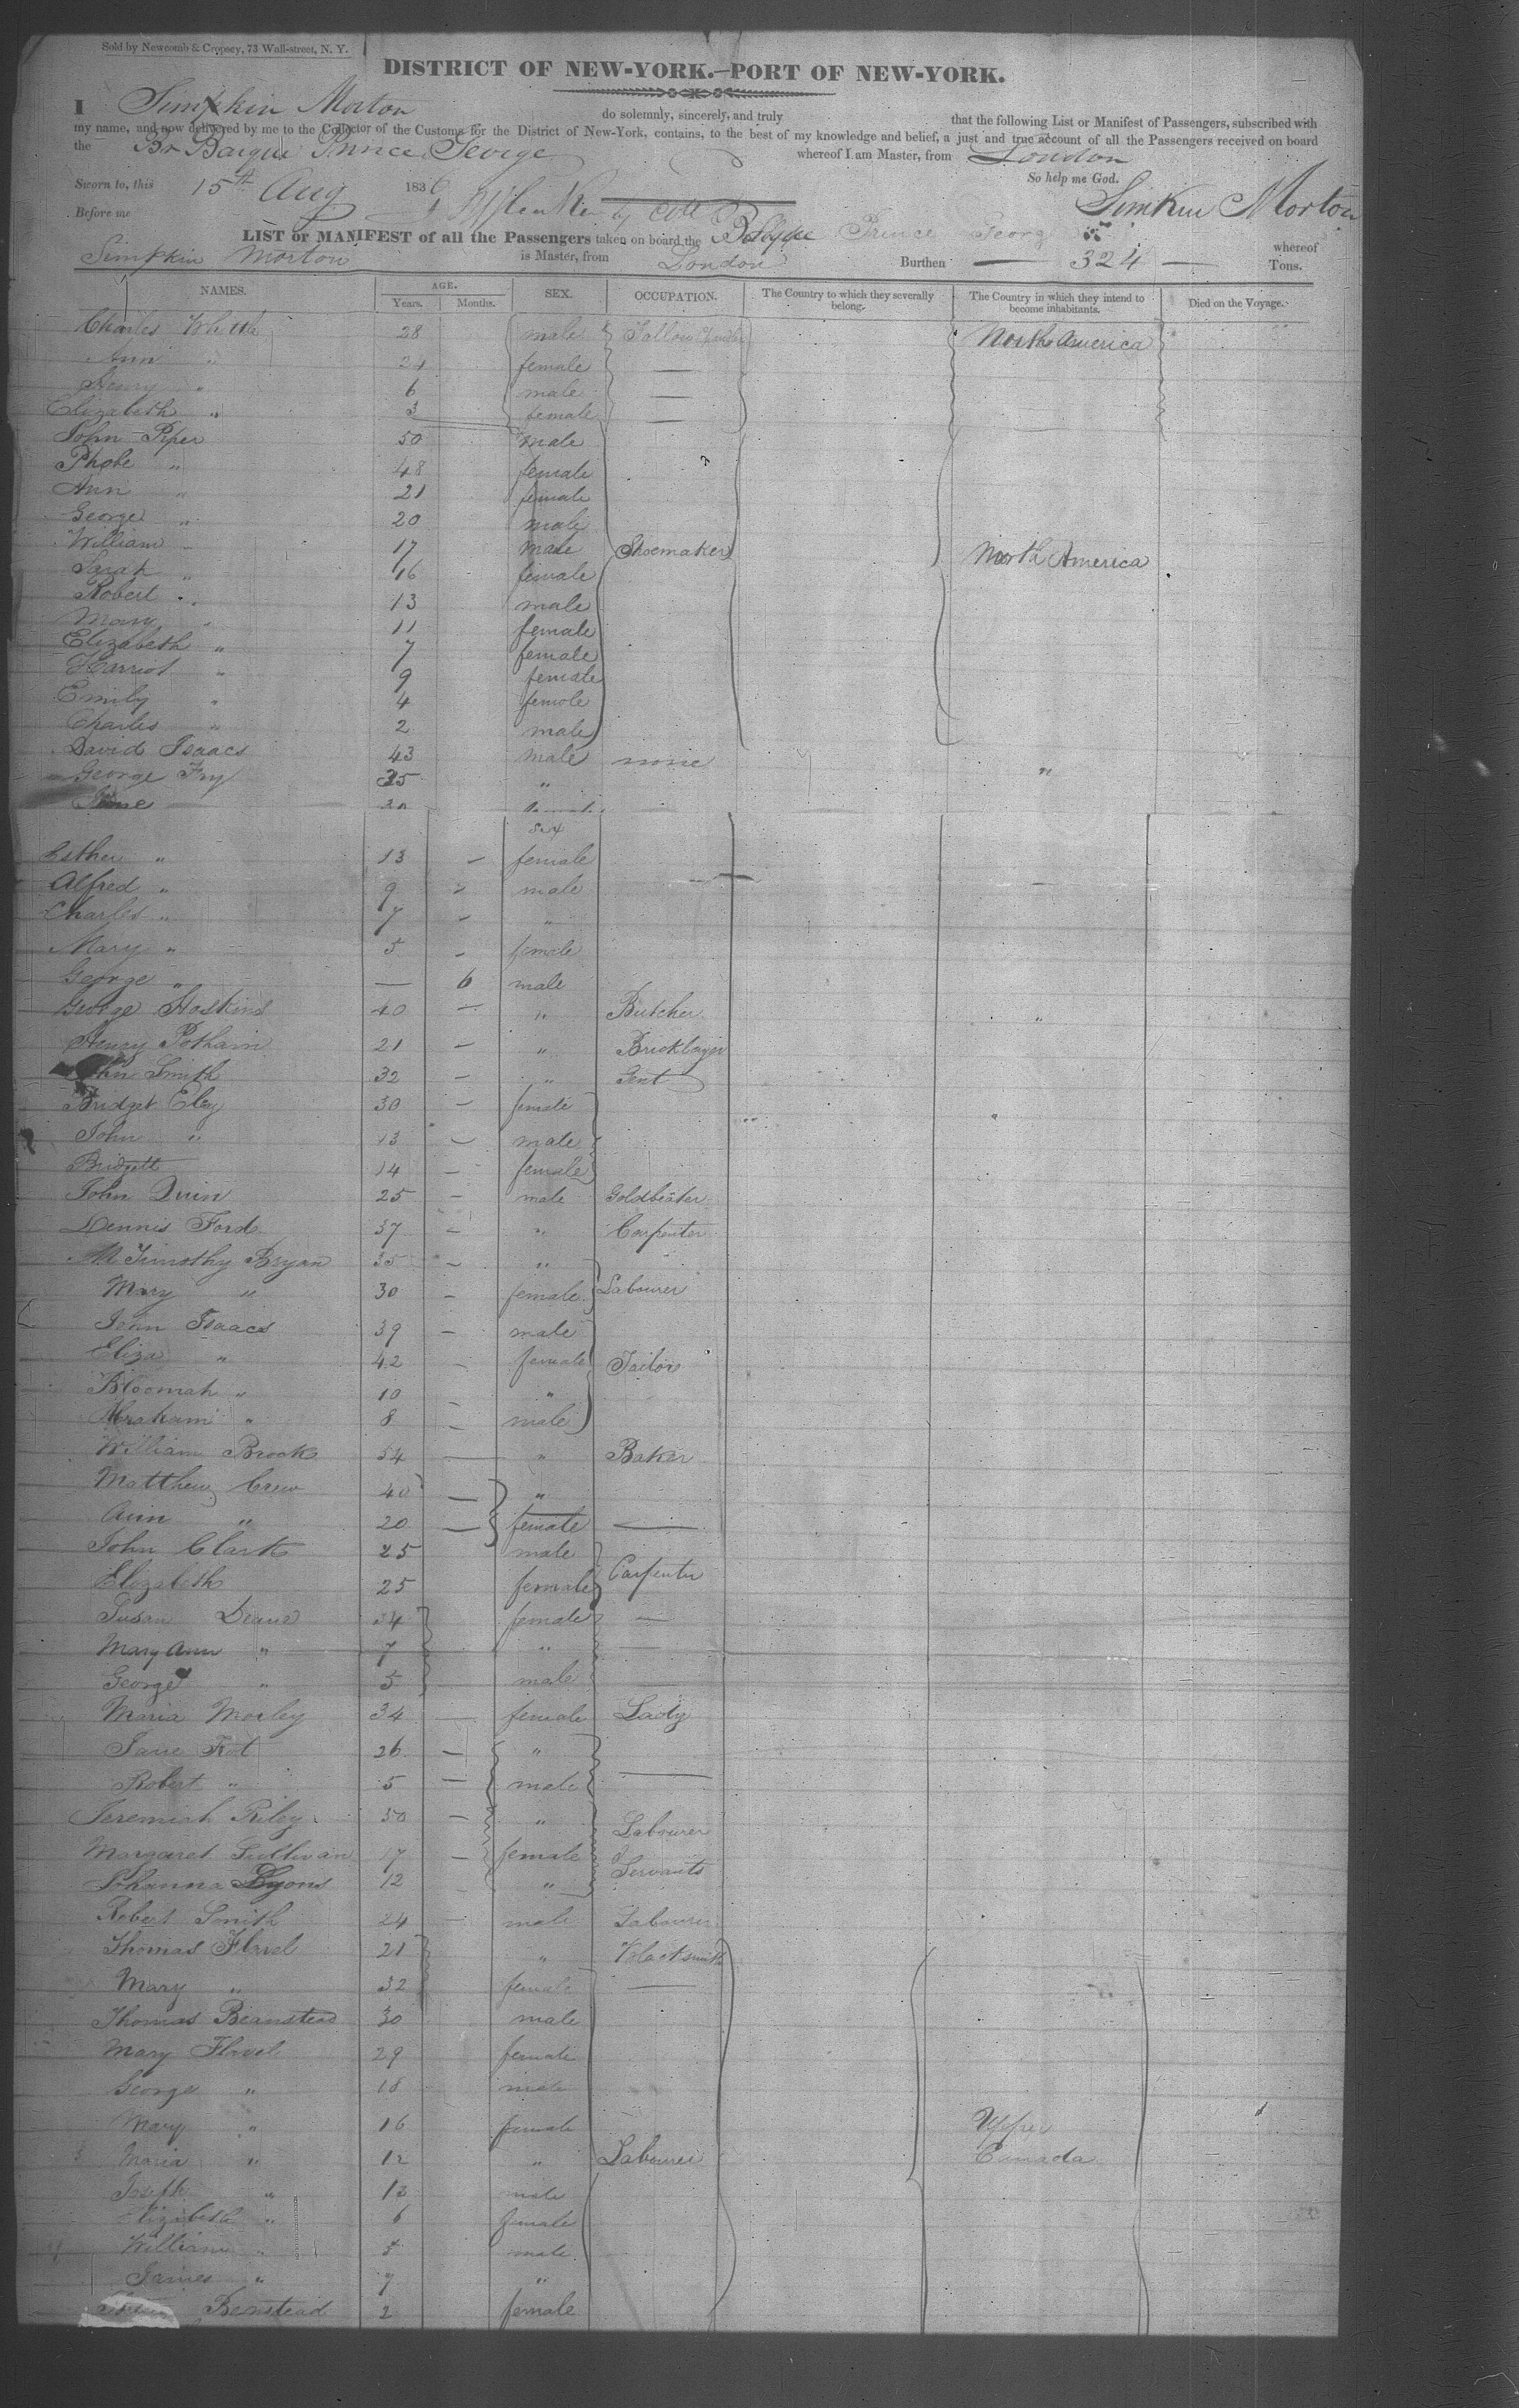 Sold by Newcomb & Cropsey, 73 Wall-street, N. Y.
DISTRICT OF NEW-YORK.—PORT OF NEW-YORK.
I Simpkin Morton do solemnly, sincerely, and truly that the following List or Manifest of Passengers, subscribed with
my name, and now delivered by me to the Collector of the Customs for the District of New-York, contains, to the best of my knowledge and belief, a just and true account of all the Passengers received on board
the Br Barque Prince George whereof I am Master, from London
Sworn to, this 15th Aug 1836 So help me God.
Before me Simkin Morton
LIST or MANIFEST of all the Passengers taken on board the Barque Prince George whereof
Simpkin Morton is Master, from London Burthen — 324 — Tons.
NAMES. AGE. SEX. OCCUPATION. The Country to which they severally belong. The Country in which they intend to become inhabitants. Died on the Voyage.
Years. Months.
Charles 28 male Tallow North America
Ann " 24 female —
Henry " 6 male —
Elizabeth " 3 female —
John Piper 50 male
Phobe " 48 female
Ann " 21 female
George " 20 male
William " 17 male Shoemaker North America
Sarah " 16 female
Robert " 13 male
Mary " 11 female
Elizabeth " 7 female
Harriot " 9 female
Emily " 4 female
Charles " 2 male
David Isaacs 43 male none
George Fry 35 " "
Jane
Sex
Esther " 13 — female
Alfred " 9 " male
Charles " 7 — "
Mary " 5 — female
George " — 6 male
George Hoskins 40 — " Butcher "
Henry Potham 21 — " Bricklayer
John Smith 32 — " Gent
Bridget Eley 30 — female
John " 13 — male
Bridgett 14 — female
John Quin 25 — male Goldbeater
Dennis Ford 37 — " Carpenter
Timothy Bryan 35 — "
Mary " 30 — female Labourer
Isaacs 39 — male
Eliza " 42 — female Tailor
Bloomah " 10 "
Abraham " 8 — male
William Brook 54 — " Baker
Matthew Crew 40 — "
Ann " 20 — female —
John Clark 25 male Carpenter
Elizabeth 25 female
Susan Deane 34 female —
Mary Ann " 7 " —
George " 5 male —
Maria Morley 34 — female Lady
Jane 26 — "
Robert " 5 — male —
Jeremiah Riley 30 — " Labourer
Margaret Sullivan 17 — female Servants
Johanna Lyons 12 "
Robert Smith 24 — male Labourer
Thomas Flavel 21 " Blacksmith
Mary " 32 female —
Thomas Beanstead 30 male
Mary Flavel 29 female
George " 18 male
Mary " 16 female Upper
Maria " 12 " Labourer Canada
Joseph " 13 male
Elizabeth " 6 female
William " male
James " 7 "
Benstead 2 female